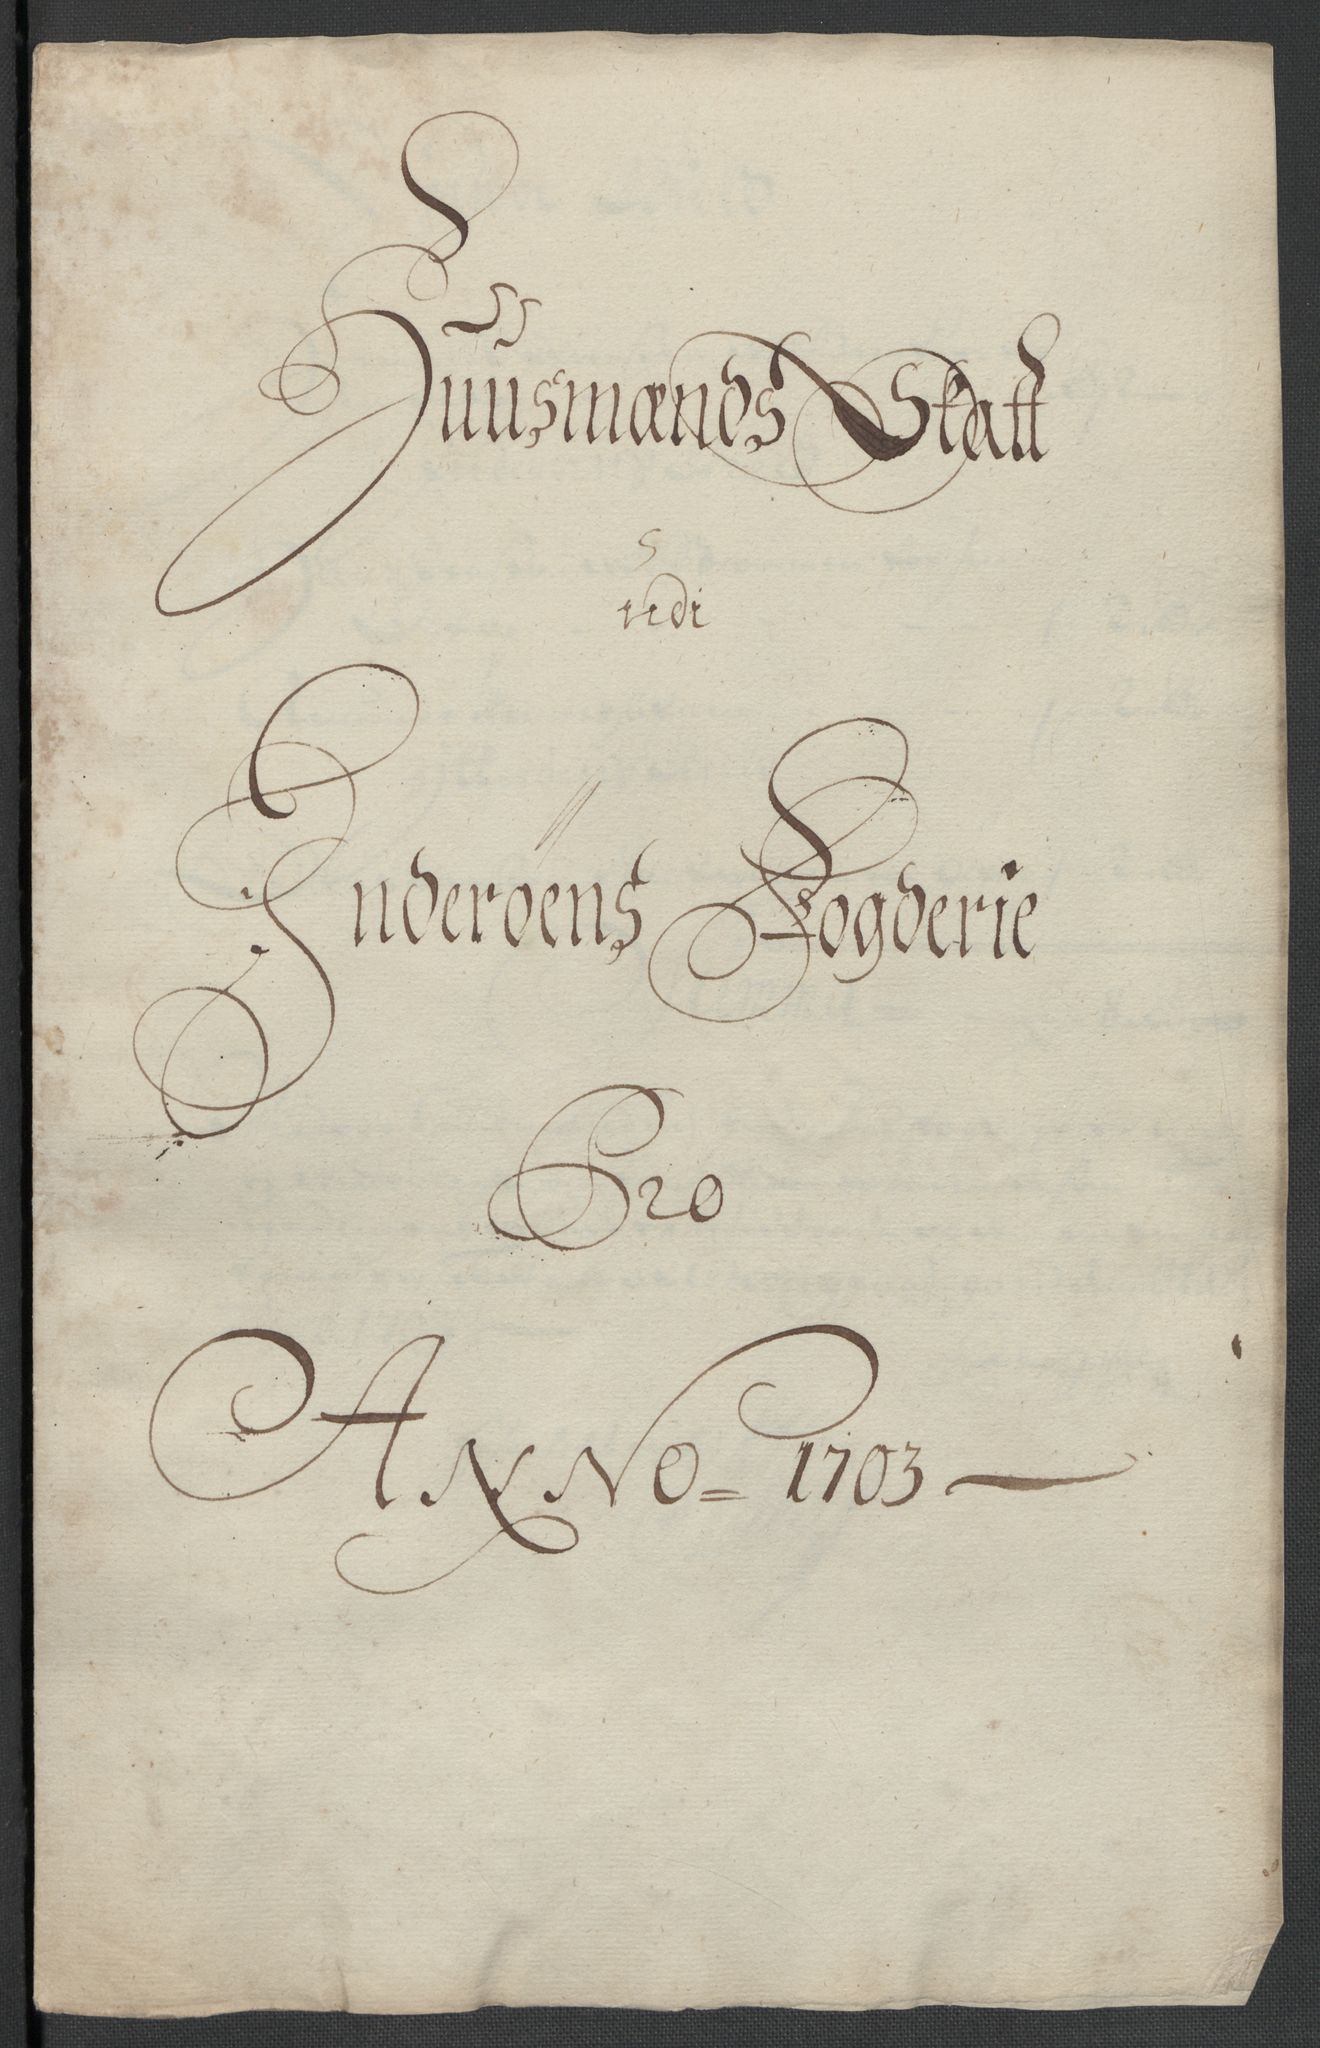 Huusmænds Skatt
udi
Inderøens Fogderie
Pro
ANNO = 1703